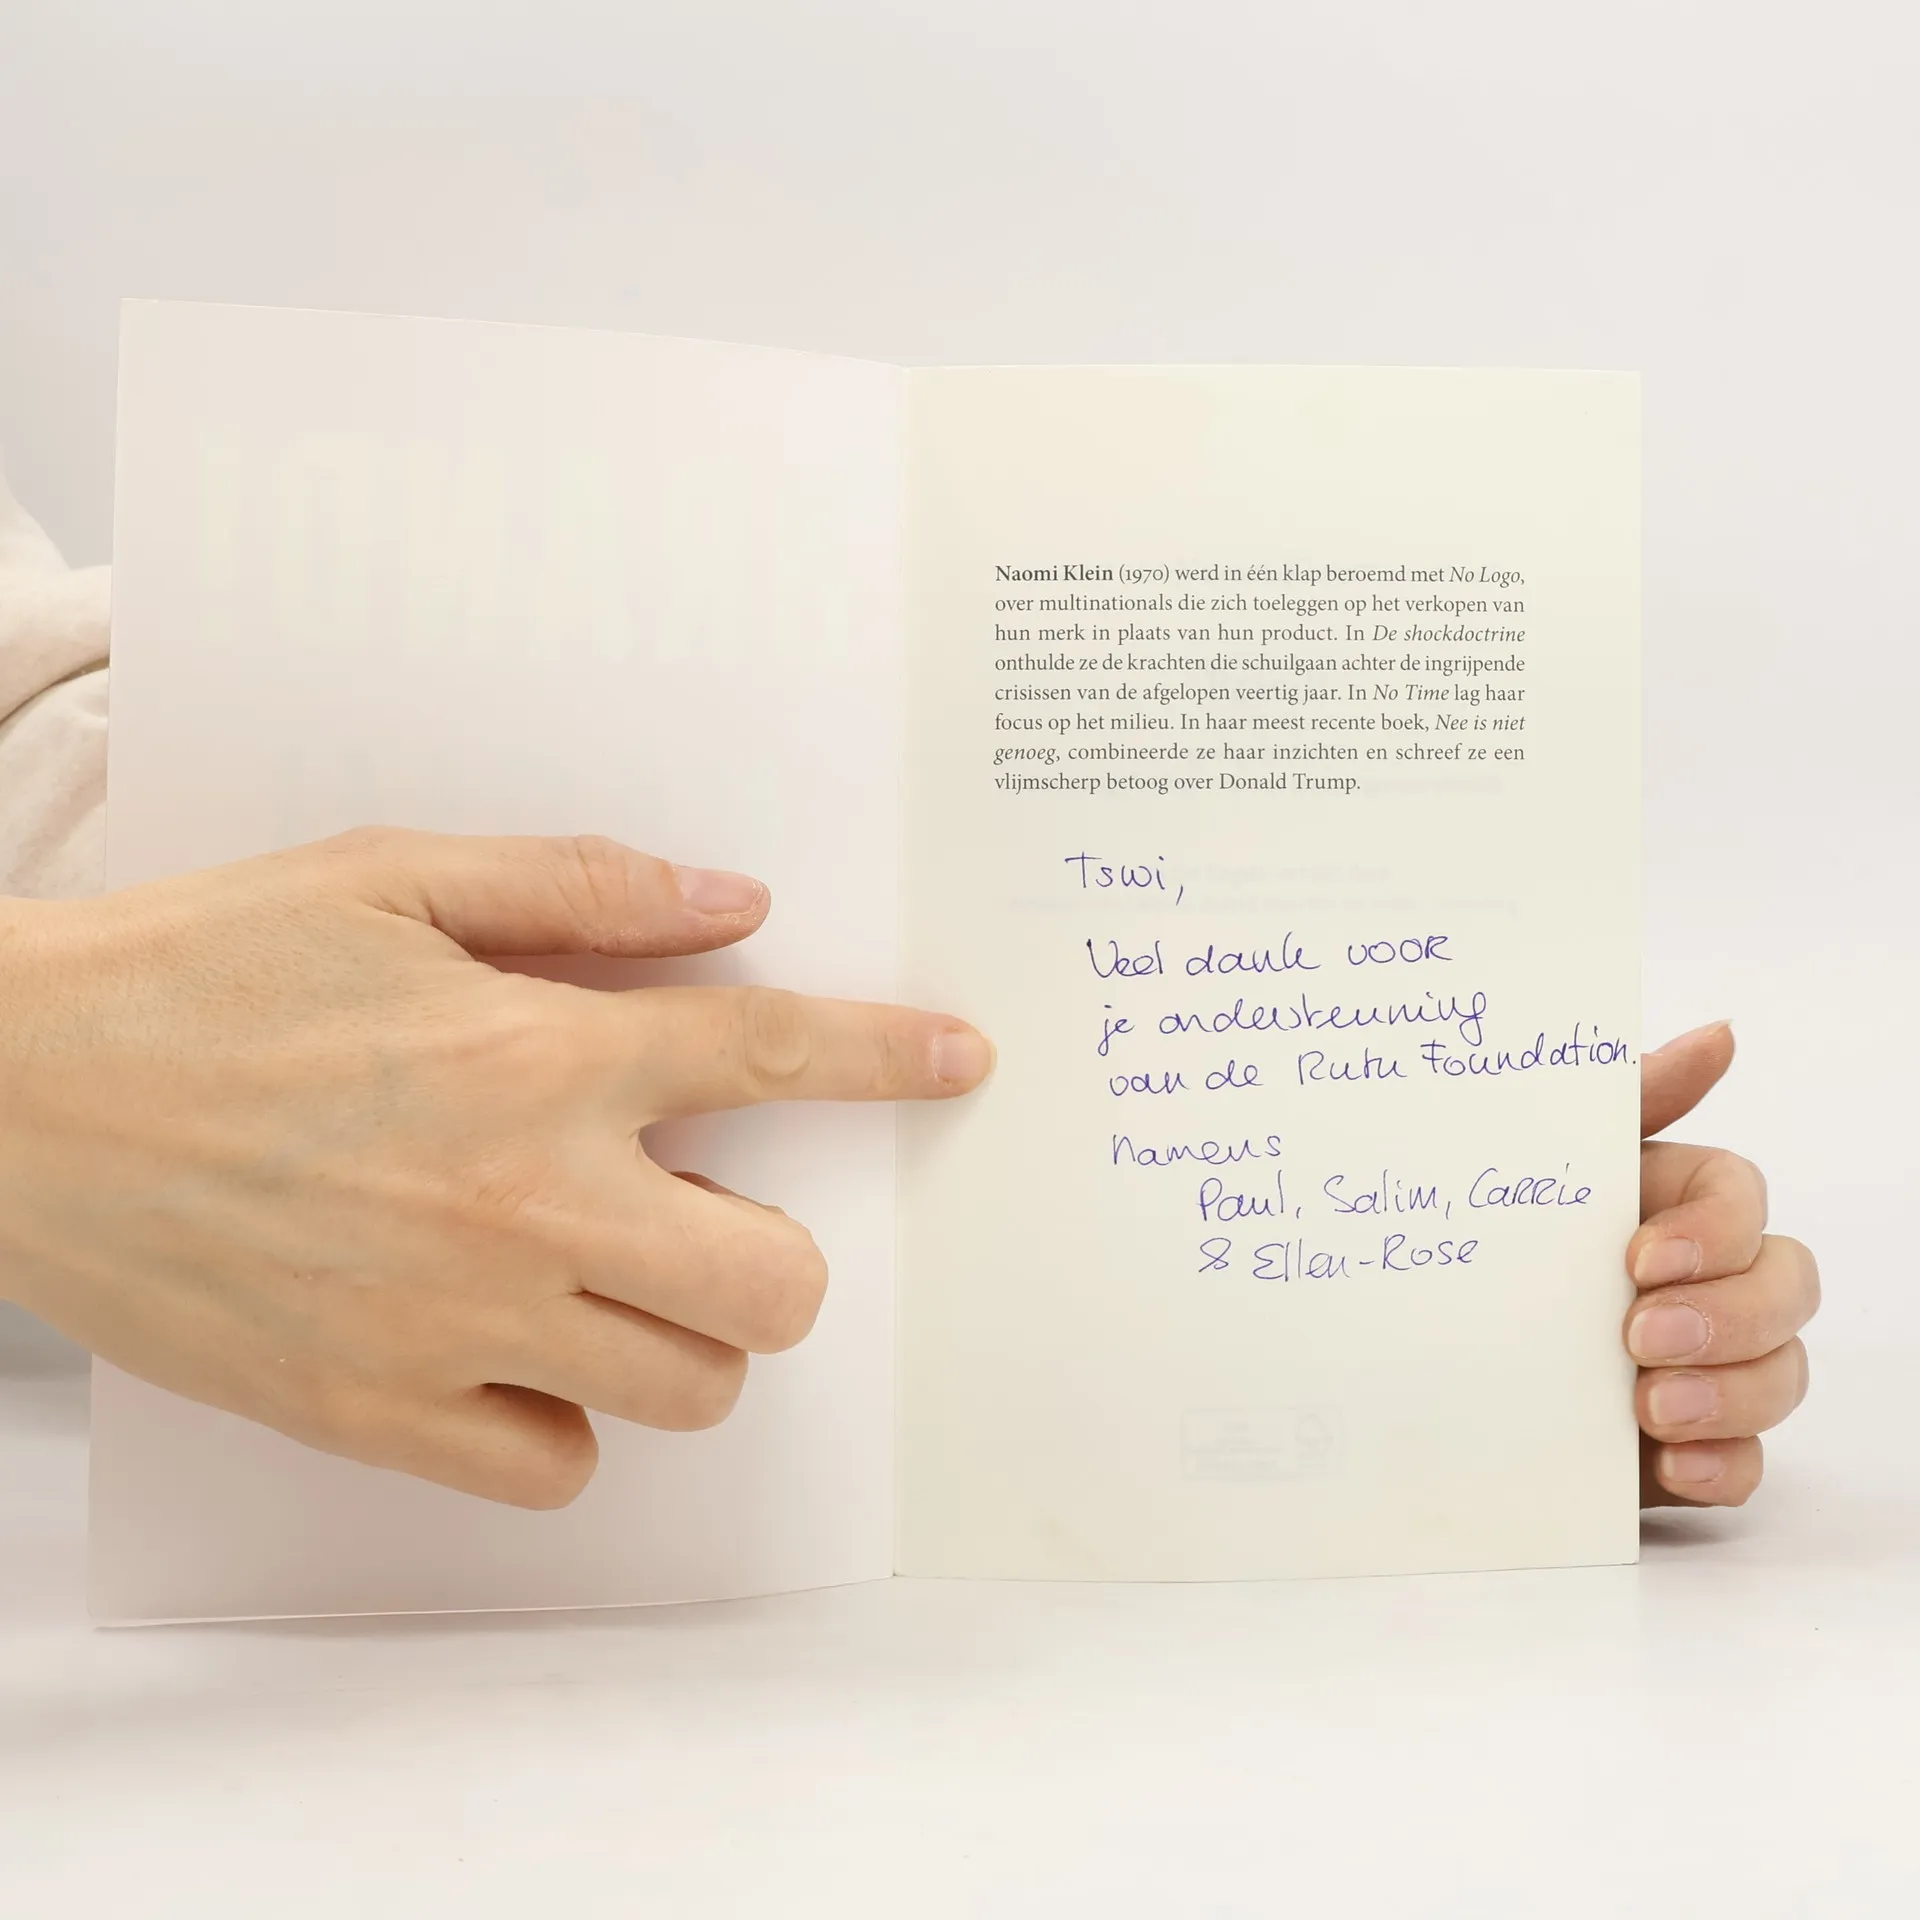 Naomi Klein (1970) werd in één klap beroemd met No Logo,
over multinationals die zich toeleggen op het verkopen van
hun merk in plaats van hun product. In De shockdoctrine
onthulde ze de krachten die schuilgaan achter de ingrijpende
crisissen van de afgelopen veertig jaar. In No Time lag haar
focus op het milieu. In haar meest recente boek, Nee is niet
genoeg, combineerde ze haar inzichten en schreef ze een
vlijmscherp betoog over Donald Trump.
Tswi,
Veel dank voor
je ondersteuning
van de Rutu Foundation.
Namens
Paul, Salim, Carrie
& Ellen-Rose